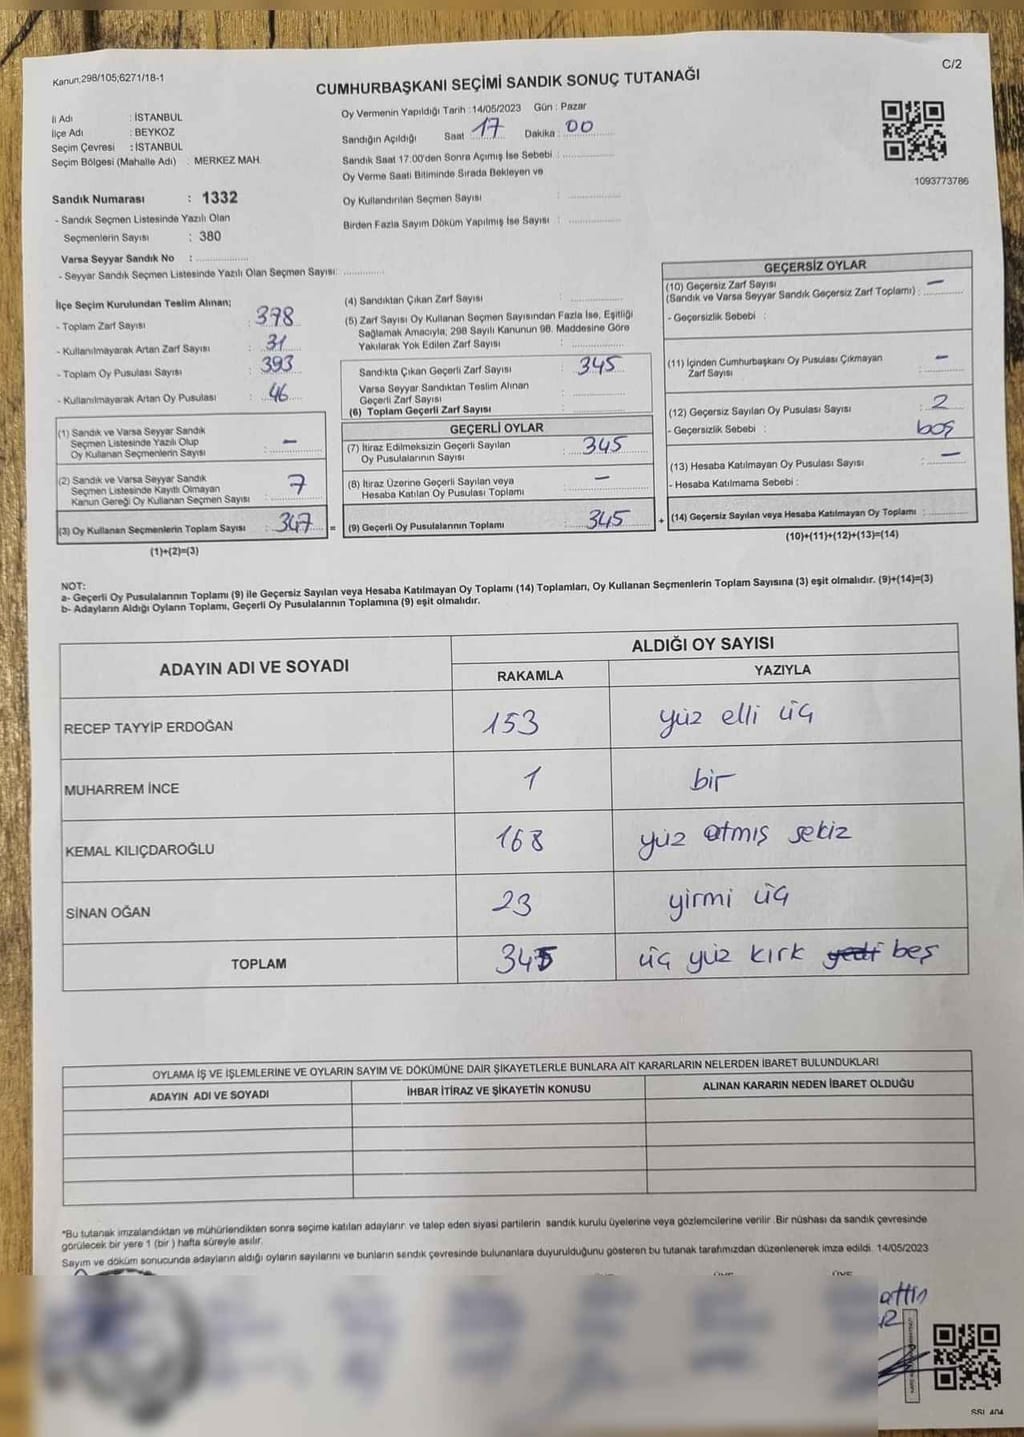 Kanun.298/105;6271/18-1
C/2
CUMHURBAŞKANI SEÇİMİ SANDIK SONUÇ TUTANAĞI
İl Adı : İSTANBUL
İlçe Adı : BEYKOZ
Seçim Çevresi : İSTANBUL
Seçim Bölgesi (Mahalle Adı) : MERKEZ MAH.
Oy Vermenin Yapıldığı Tarih :14/05/2023 Gün : Pazar
Sandığın Açıldığı Saat 17 Dakika 00
Sandık Saat 17.00'den Sonra Açımış İse Sebebi :
Oy Verme Saati Bitiminde Sırada Bekleyen ve
Oy Kullandırılan Seçmen Sayısı
Birden Fazla Sayım Döküm Yapılmış İse Sayısı :
1093773786
Sandık Numarası : 1332
- Sandık Seçmen Listesinde Yazılı Olan
Seçmenlerin Sayısı : 380
Varsa Seyyar Sandık No :
- Seyyar Sandık Seçmen Listesinde Yazılı Olan Seçmen Sayısı:
İlçe Seçim Kurulundan Teslim Alınan;
- Toplam Zarf Sayısı : 378
- Kullanılmayarak Artan Zarf Sayısı : 31
- Toplam Oy Pusulası Sayısı : 393
- Kullanılmayarak Artan Oy Pusulası : 46
(1) Sandık ve Varsa Seyyar Sandık
Seçmen Listesinde Yazılı Olup
Oy Kullanan Seçmenlerin Sayısı : –
(2) Sandık ve Varsa Seyyar Sandık
Seçmen Listesinde Kayıtlı Olmayan
Kanun Gereği Oy Kullanan Seçmen Sayısı : 7
(3) Oy Kullanan Seçmenlerin Toplam Sayısı : 347 =
(1)+(2)=(3)
(4) Sandıktan Çıkan Zarf Sayısı :
(5) Zarf Sayısı Oy Kullanan Seçmen Sayısından Fazla İse, Eşitliği
Sağlamak Amacıyla, 298 Sayılı Kanunun 98. Maddesine Göre
Yakılarak Yok Edilen Zarf Sayısı :
Sandıkta Çıkan Geçerli Zarf Sayısı : 345
Varsa Seyyar Sandıktan Teslim Alınan
Geçerli Zarf Sayısı :
(6) Toplam Geçerli Zarf Sayısı :
GEÇERLİ OYLAR
(7) İtiraz Edilmeksizin Geçerli Sayılan
Oy Pusulalarının Sayısı : 345
(8) İtiraz Üzerine Geçerli Sayılan veya
Hesaba Katılan Oy Pusulası Toplamı : –
(9) Geçerli Oy Pusulalarının Toplamı : 345 +
GEÇERSİZ OYLAR
(10) Geçersiz Zarf Sayısı
(Sandık ve Varsa Seyyar Sandık Geçersiz Zarf Toplamı) : –
- Geçersizlik Sebebi :
(11) İçinden Cumhurbaşkanı Oy Pusulası Çıkmayan
Zarf Sayısı : –
(12) Geçersiz Sayılan Oy Pusulası Sayısı : 2
- Geçersizlik Sebebi : boş
(13) Hesaba Katılmayan Oy Pusulası Sayısı : –
- Hesaba Katılmama Sebebi :
(14) Geçersiz Sayılan veya Hesaba Katılmayan Oy Toplamı :
(10)+(11)+(12)+(13)=(14)
NOT:
a- Geçerli Oy Pusulalarının Toplamı (9) ile Geçersiz Sayılan veya Hesaba Katılmayan Oy Toplamı (14) Toplamları, Oy Kullanan Seçmenlerin Toplam Sayısına (3) eşit olmalıdır. (9)+(14)=(3)
b- Adayların Aldığı Oyların Toplamı, Geçerli Oy Pusulalarının Toplamına (9) eşit olmalıdır.
ADAYIN ADI VE SOYADI ALDIĞI OY SAYISI
RAKAMLA YAZIYLA
RECEP TAYYİP ERDOĞAN 153 yüz elli üç
MUHARREM İNCE 1 bir
KEMAL KILIÇDAROĞLU 168 yüz atmış sekiz
SİNAN OĞAN 23 yirmi üç
TOPLAM 345 üç yüz kırk yedi beş
OYLAMA İŞ VE İŞLEMLERİNE VE OYLARIN SAYIM VE DÖKÜMÜNE DAİR ŞİKAYETLERLE BUNLARA AİT KARARLARIN NELERDEN İBARET BULUNDUKLARI
ADAYIN ADI VE SOYADI İHBAR İTİRAZ VE ŞİKAYETİN KONUSU ALINAN KARARIN NEDEN İBARET OLDUĞU
*Bu tutanak imzalandıktan ve mühürlendikten sonra seçime katılan adayların ve talep eden siyasi partilerin sandık kurulu üyelerine veya gözlemcilerine verilir .Bir nüshası da sandık çevresinde
görülecek bir yere 1 (bir ) hafta süreyle asılır.
Sayım ve döküm sonucunda adayların aldığı oyların sayılarını ve bunların sandık çevresinde bulunanlara duyurulduğunu gösteren bu tutanak tarafımızdan düzenlenerek imza edildi. 14/05/2023
attin